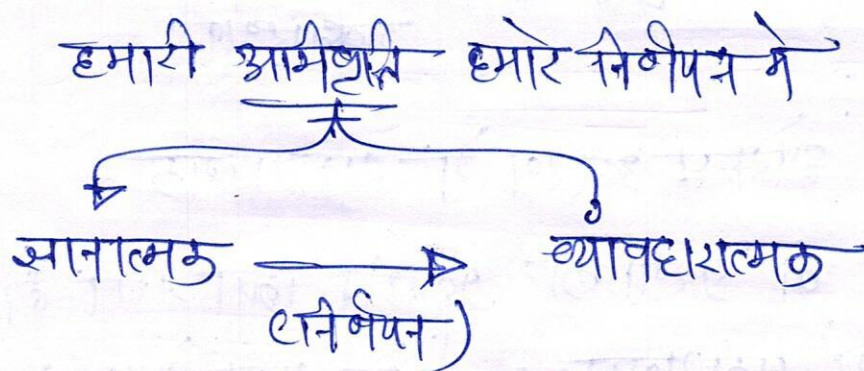 हमारी अभिवृत्ति हमारे निर्णयन मे
ज्ञानात्मक व्यावहारात्मक
(निर्णयन)